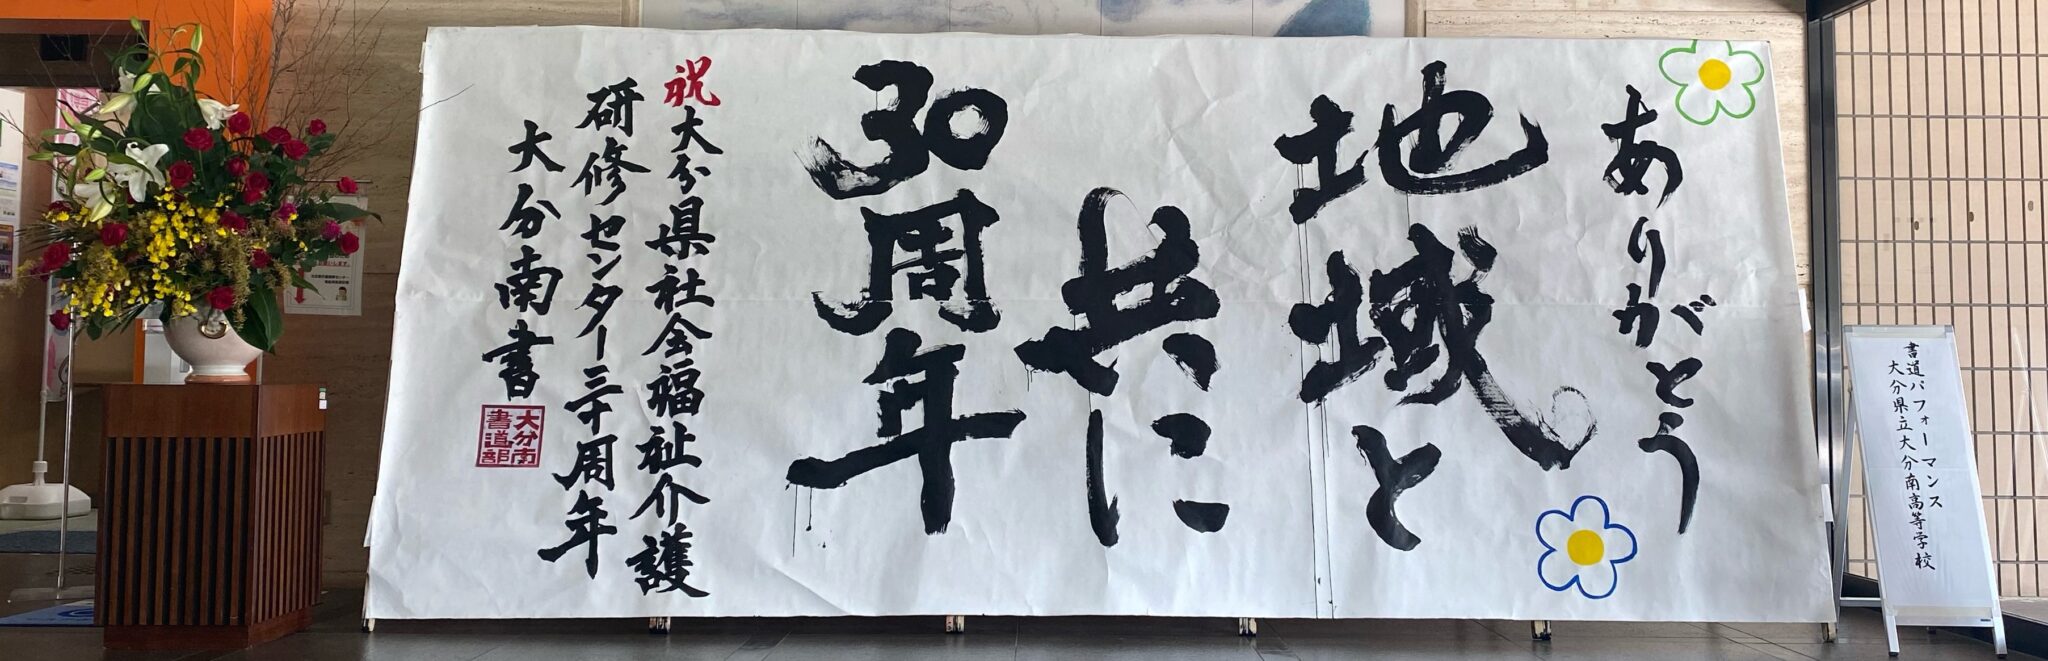 ありがとう
地域と
共に
30周年
祝大分県社会福祉介護
研修センター三十周年
大分南書
大分南
書道部
書道パフォーマンス
大分県立大分南高等学校